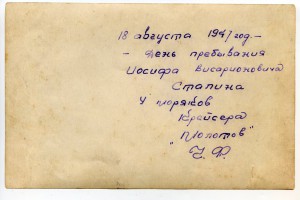 18 августа 1947 год –
– день пребывания
Иосифа Висарионовича
Сталина
у моряков
Крейсера
"Молотов"
Ч. Ф.